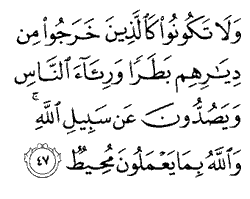 وَلَا تَكُونُوا۟ كَٱلَّذِينَ خَرَجُوا۟ مِن
دِيَـٰرِهِم بَطَرًۭا وَرِئَآءَ ٱلنَّاسِ
وَيَصُدُّونَ عَن سَبِيلِ ٱللَّهِ ۚ
وَٱللَّهُ بِمَا يَعْمَلُونَ مُحِيطٌۭ ٤٧